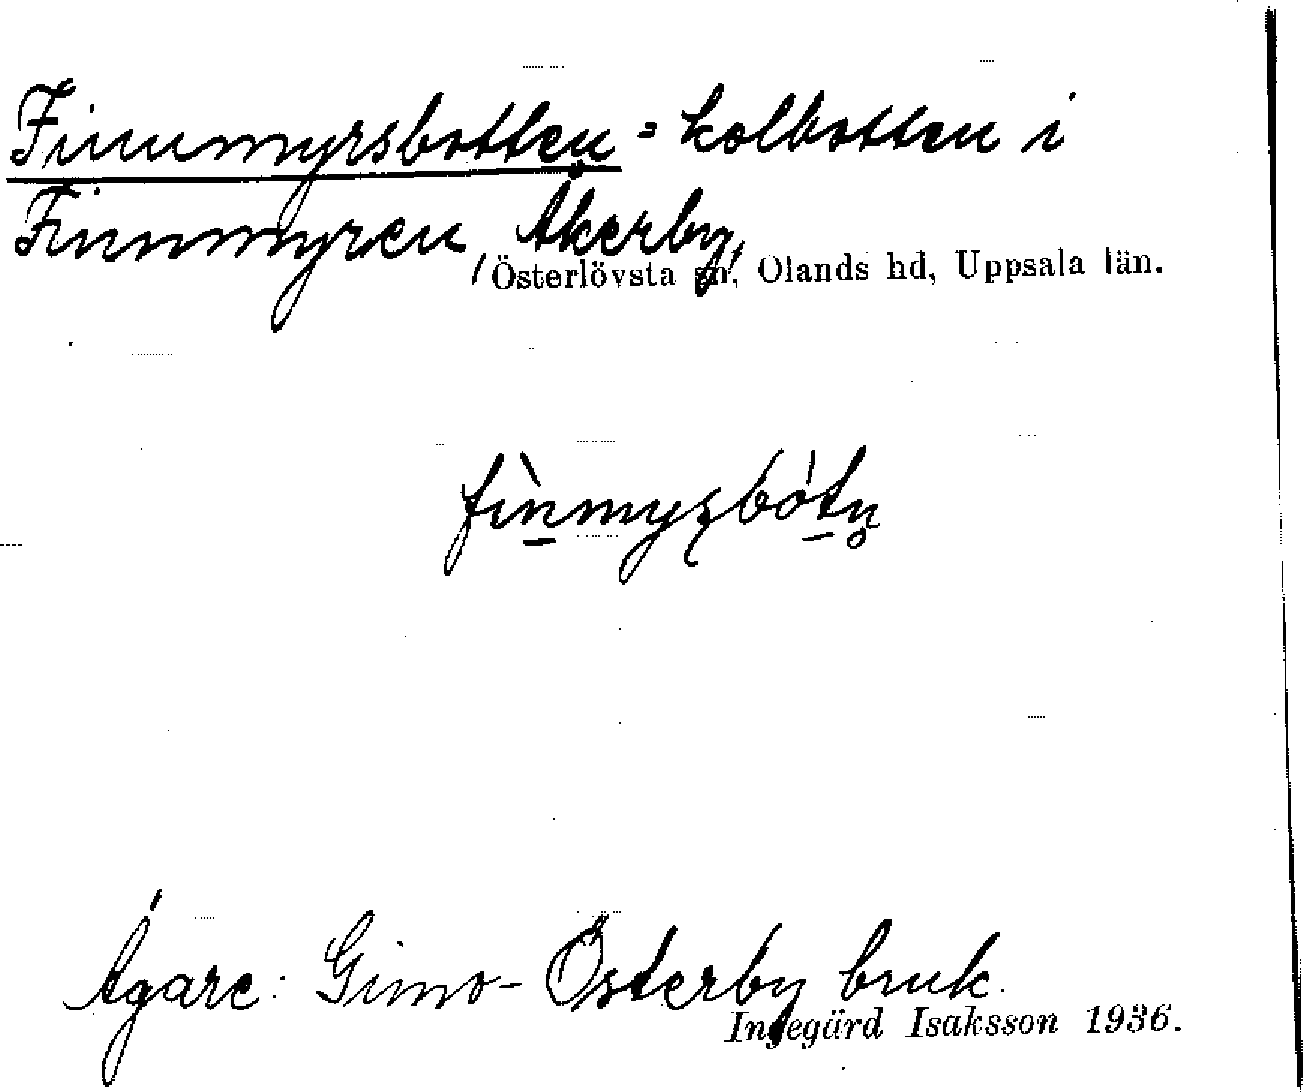 Finnmyrsbotten = kolbotten i
Finnmyren Åkerby,
Österlövsta sn, Olands hd, Uppsala län.
fìnmyʂbótn̥
Ägare: Gimo-Österby bruk.
Ingegärd Isaksson 1936.